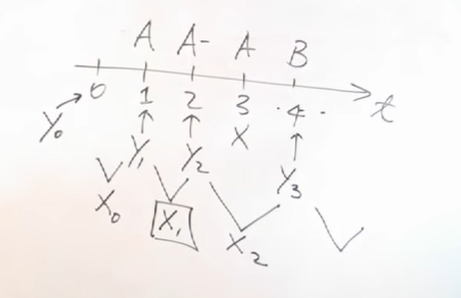 A A- A B
0 1 2 3 ·4· t
Y₀ X
Y₁ Y₂ Y₃
X₀ X₁ X₂